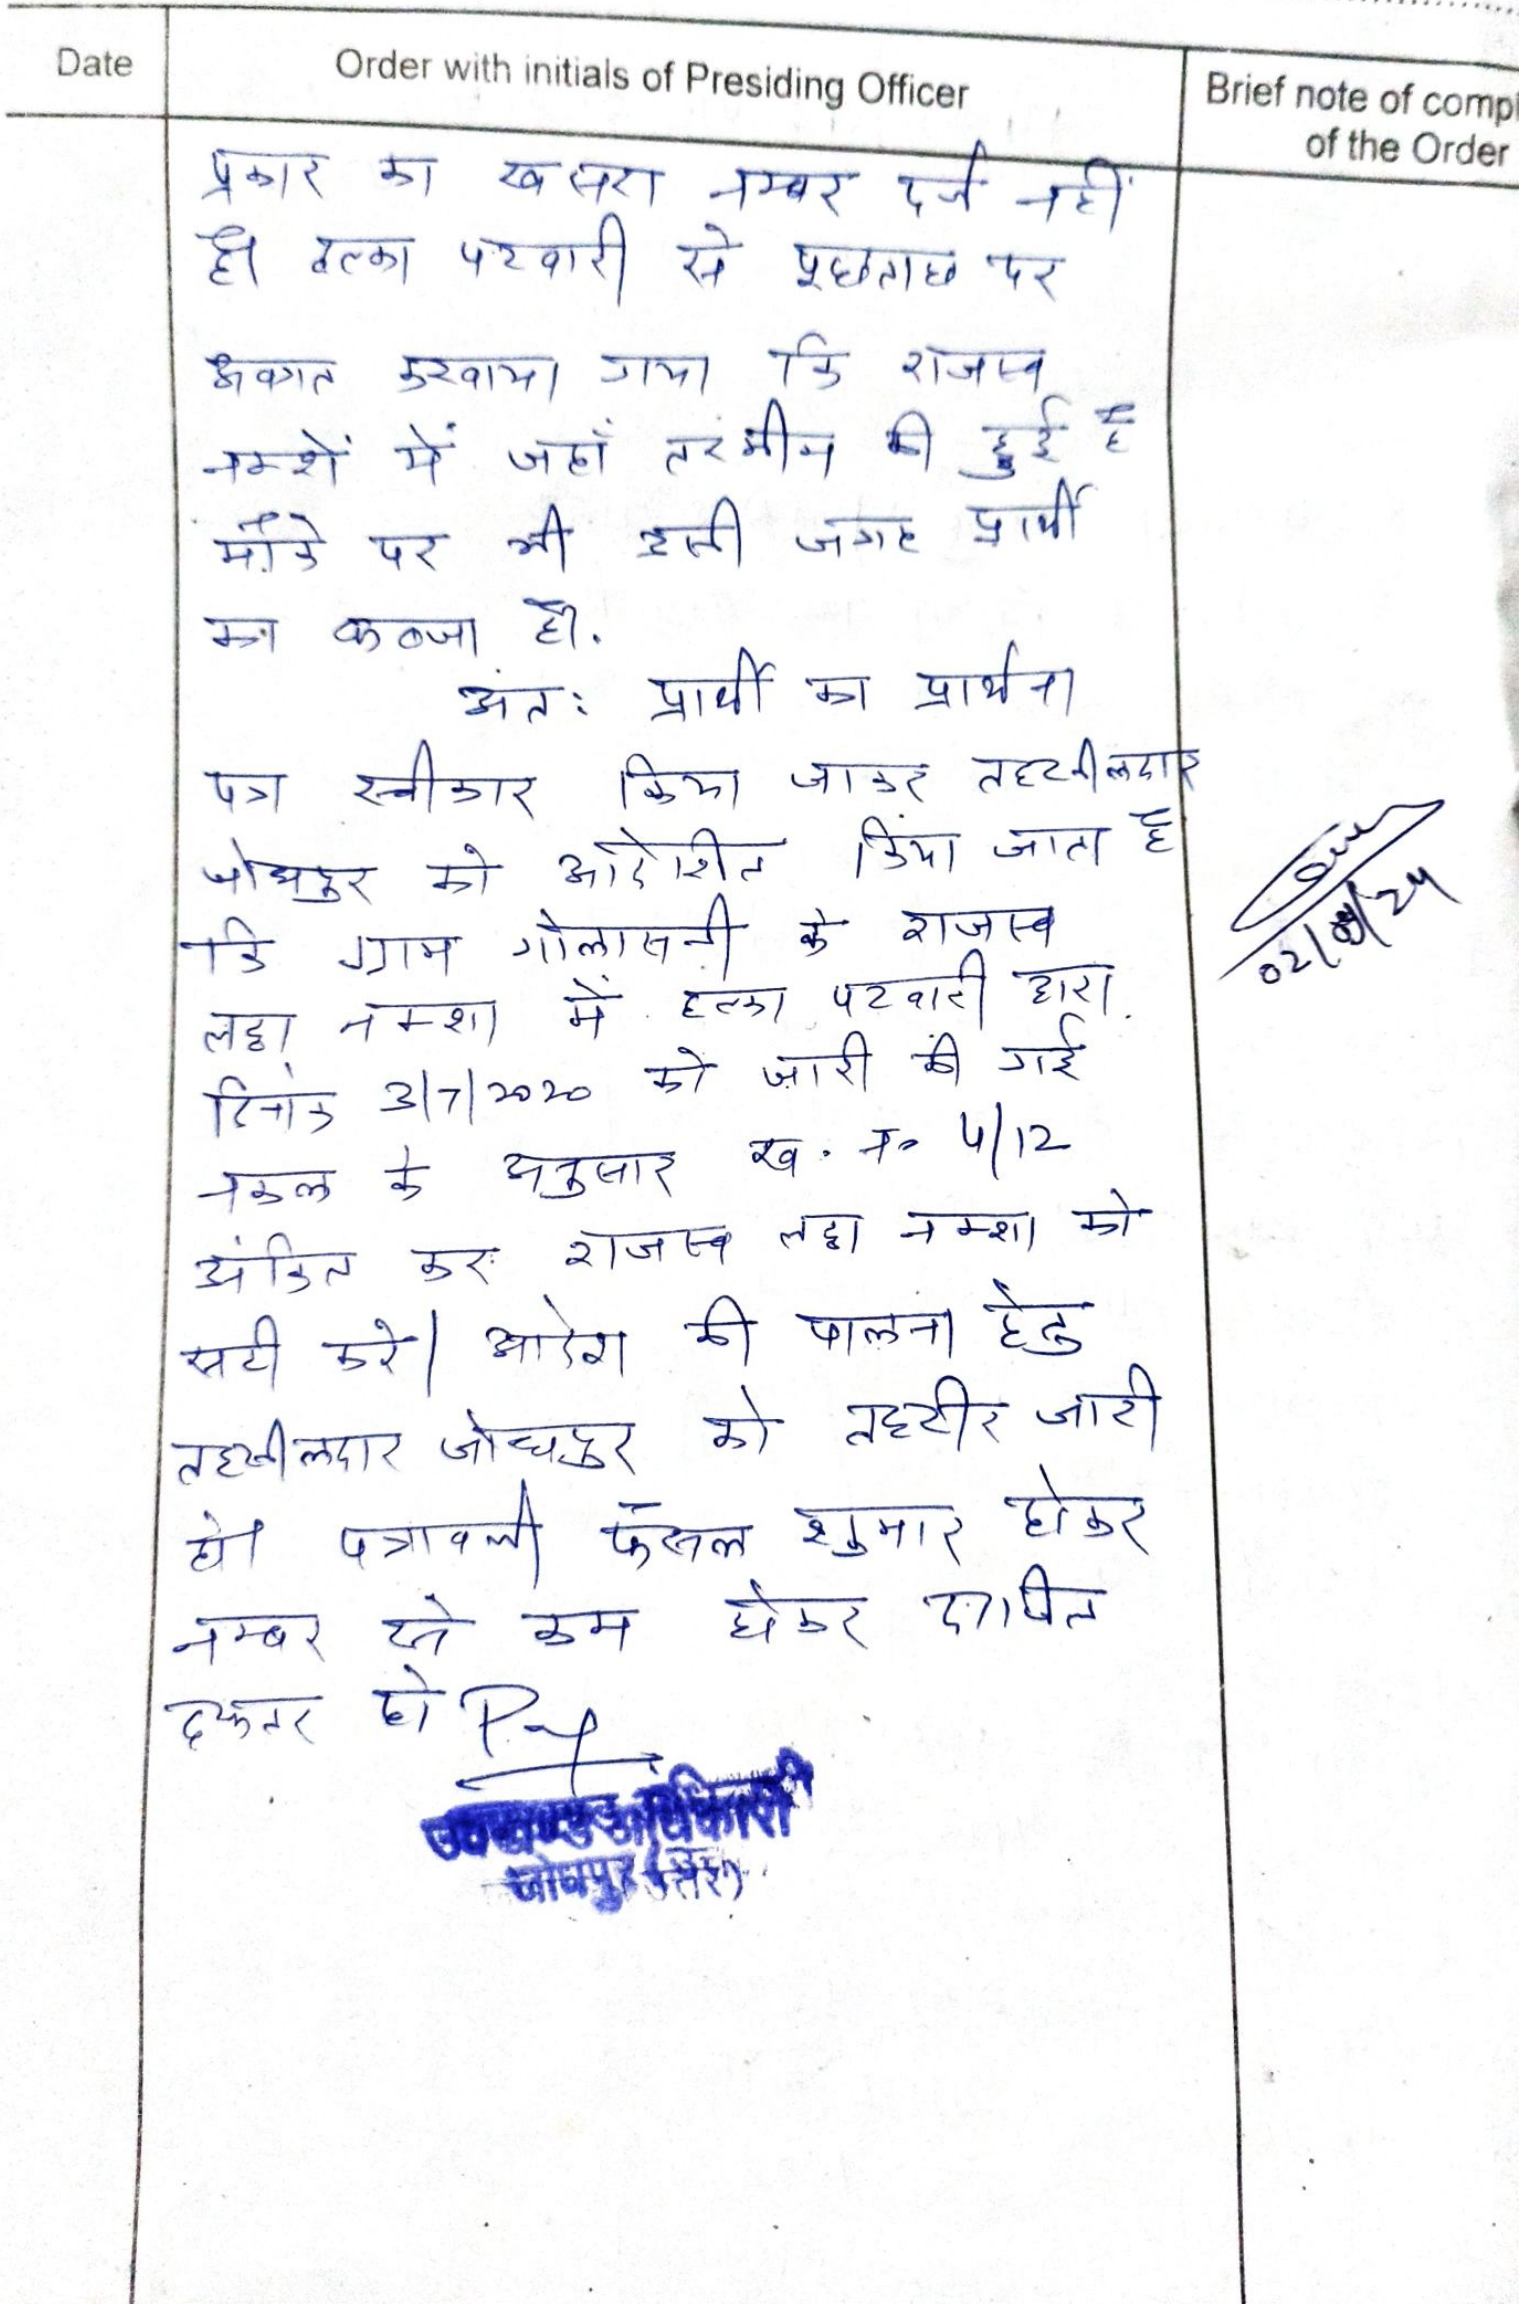 Date
Order with initials of Presiding Officer
Brief note of compl
of the Order
प्रकार का खसरा नम्बर दर्ज नहीं
है। हल्का पटवारी से पूछताछ पर
अवगत करवाया गया कि राजस्व
नक्शें में जहाँ तरमीम की हुई है
मौके पर भी इसी जगह प्रार्थी
का कब्जा है।
अंत: प्रार्थी का प्रार्थना
पत्र स्वीकार किया जाकर तहसीलदार
जोधपुर को आदेशित किया जाता है
कि ग्राम गोलासनी के राजस्व
लट्ठा नक्शा में हल्का पटवारी द्वारा
दिनांक 3/7/2020 को जारी की गई
नकल के अनुसार ख. न० 4/12
अंकित कर राजस्व लट्ठा नक्शा को
सही करे। आदेश की पालना हेतु
तहसीलदार जोधपुर को तहरीर जारी
हो। पत्रावली फैसल शुमार होकर
नम्बर से कम होकर दाखिल
दफ्तर हो
उपखण्ड अधिकारी
जोधपुर (उत्तर)